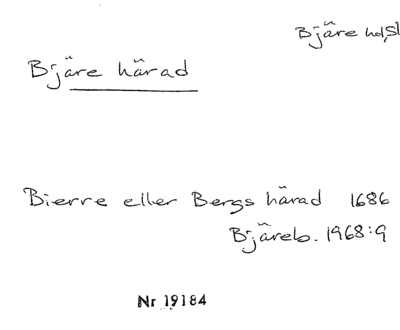 Bjäre hd, Sk
Bjäre härad
Bierre eller Bergs härad 1686
Bjäreb. 1968:9
Nr 19184